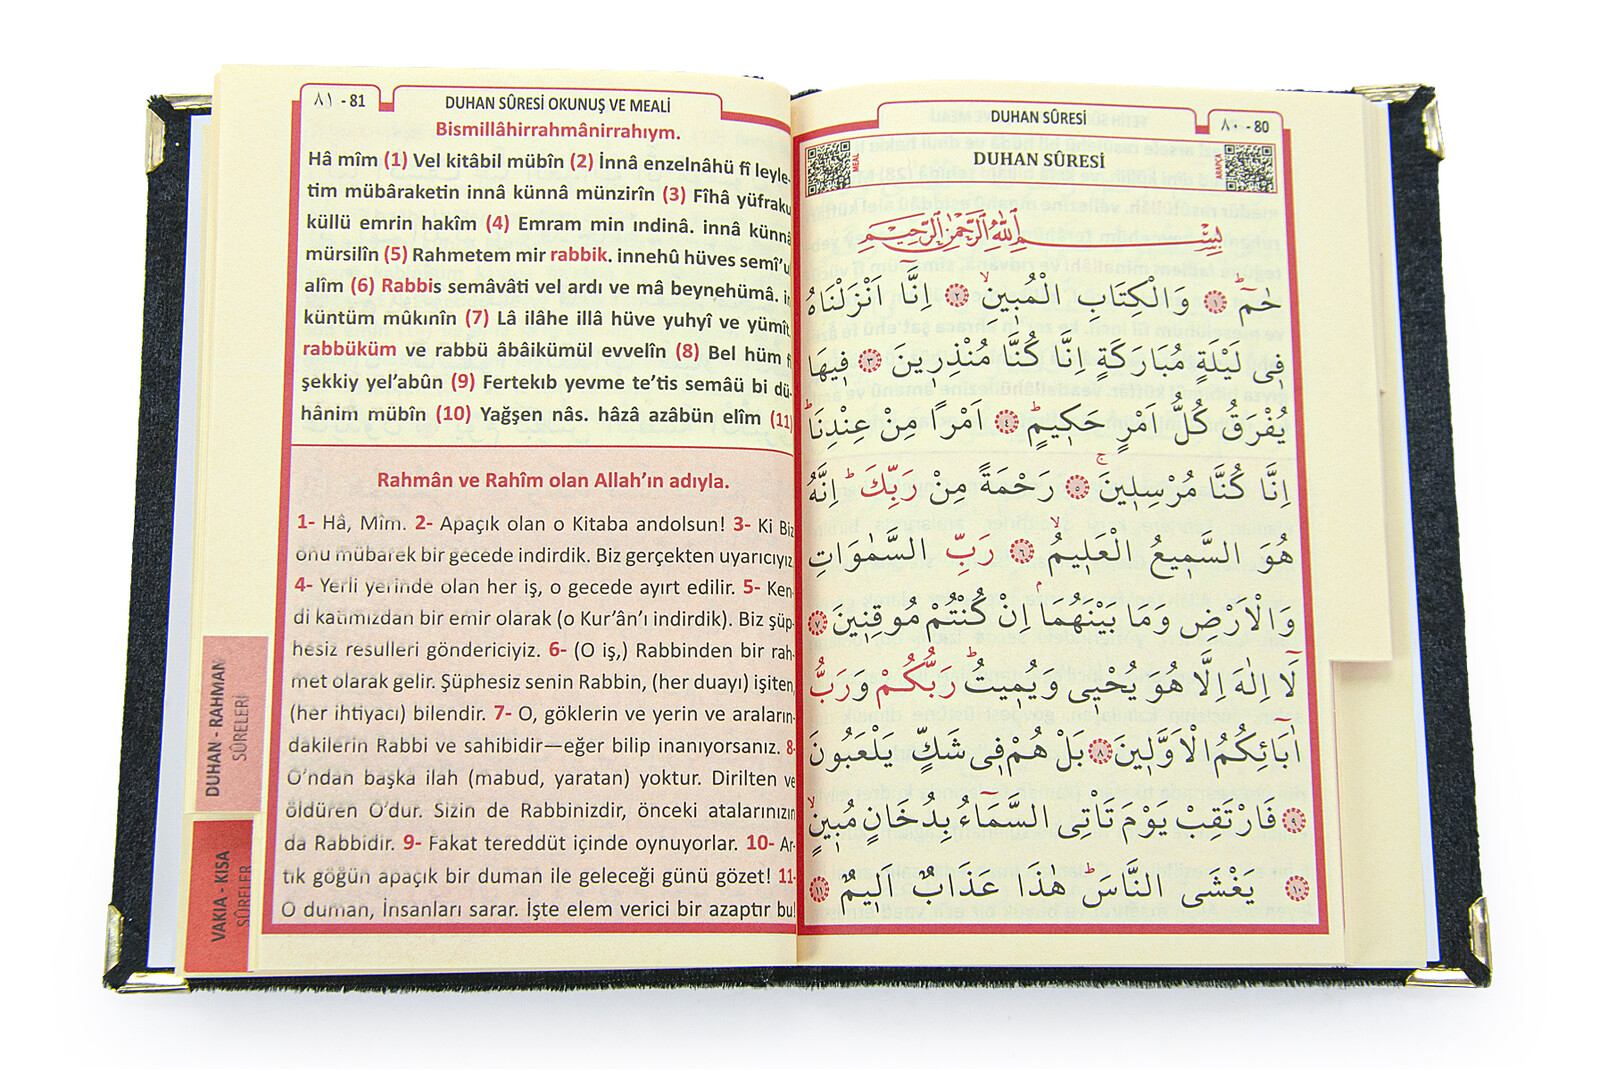 ٨١ - 81
DUHAN SÛRESİ OKUNUŞ VE MEALİ
Bismillâhirrahmânirrahıym.
Hâ mîm (1) Vel kitâbil mübîn (2) İnnâ enzelnâhü fî leyle-
tim mübâraketin innâ künnâ münzirîn (3) Fîhâ yüfraku
küllü emrin hakîm (4) Emram min ındinâ. innâ künnâ
mürsilîn (5) Rahmetem mir rabbik. innehû hüves semî’u
alîm (6) Rabbis semâvâti vel ardı ve mâ beynehümâ. in
küntüm mûkınîn (7) Lâ ilâhe illâ hüve yuhyî ve yümît.
rabbüküm ve rabbü âbâikümül evvelîn (8) Bel hüm fî
şekkiy yel’abûn (9) Fertekıb yevme te’tis semâü bi dü-
hânim mübîn (10) Yağşen nâs. hâzâ azâbün elîm (11)
Rahmân ve Rahîm olan Allah’ın adıyla.
1- Hâ, Mîm. 2- Apaçık olan o Kitaba andolsun! 3- Ki Biz
onu mübarek bir gecede indirdik. Biz gerçekten uyarıcıyız.
4- Yerli yerinde olan her iş, o gecede ayırt edilir. 5- Ken-
di katımızdan bir emir olarak (o Kur’ân’ı indirdik). Biz şüp-
hesiz resulleri göndericiyiz. 6- (O iş,) Rabbinden bir rah-
met olarak gelir. Şüphesiz senin Rabbin, (her duayı) işiten,
(her ihtiyacı) bilendir. 7- O, göklerin ve yerin ve araların-
dakilerin Rabbi ve sahibidir—eğer bilip inanıyorsanız. 8-
O’ndan başka ilah (mabud, yaratan) yoktur. Dirilten ve
öldüren O’dur. Sizin de Rabbinizdir, önceki atalarınızın
da Rabbidir. 9- Fakat tereddüt içinde oynuyorlar. 10- Ar-
tık göğün apaçık bir duman ile geleceği günü gözet! 11-
O duman, İnsanları sarar. İşte elem verici bir azaptır bu!
DUHAN - RAHMAN
SÛRELERİ
VAKIA - KISA
SÛRELER
DUHAN SÛRESİ
٨٠ - 80
MEAL
DUHAN SÛRESİ
ARAPÇA
بِسْمِ اللّٰهِ الرَّحْمٰنِ الرَّحِيمِ
حٰمٓ ۚ ﴿١﴾ وَالْكِتَابِ الْمُبٖينِ ۙ ﴿٢﴾ اِنَّٓا اَنْزَلْنَاهُ
فٖى لَيْلَةٍ مُبَارَكَةٍ اِنَّا كُنَّا مُنْذِرٖينَ ﴿٣﴾ فٖيهَا
يُفْرَقُ كُلُّ اَمْرٍ حَكٖيمٍ ۚ ﴿٤﴾ اَمْرًا مِنْ عِنْدِنَا ۜ
اِنَّا كُنَّا مُرْسِلٖينَ ۚ ﴿٥﴾ رَحْمَةً مِنْ رَبِّكَ ۜ اِنَّهُ
هُوَ السَّمٖيعُ الْعَلٖيمُ ۙ ﴿٦﴾ رَبِّ السَّمٰوَاتِ
وَالْاَرْضِ وَمَا بَيْنَهُمَا ۢ اِنْ كُنْتُمْ مُوقِنٖينَ ﴿٧﴾
لَٓا اِلٰهَ اِلَّا هُوَ يُحْيٖى وَيُمٖيتُ ۜ رَبُّكُمْ وَرَبُّ
اٰبَٓائِكُمُ الْاَوَّلٖينَ ﴿٨﴾ بَلْ هُمْ فٖى شَكٍّ يَلْعَبُونَ
﴿٩﴾ فَارْتَقِبْ يَوْمَ تَاْتِى السَّمَٓاءُ بِدُخَانٍ مُبٖينٍ ۙ
﴿١٠﴾ يَغْشَى النَّاسَ ۜ هٰذَا عَذَابٌ اَلٖيمٌ ﴿١١﴾